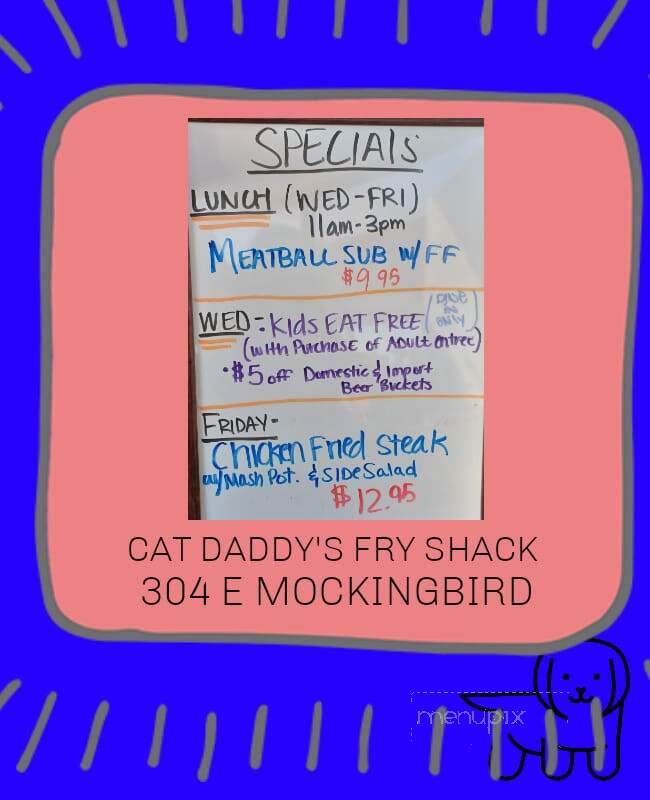 SPECIAlS
LUNCH (WED-FRI)
11am-3pm
MEATBALL SUB W/FF
$9.95
WED-: Kids EAT FREE (DINE IN ONLY)
(with Purchase of Adult entree)
·$5 off Domestic & Import
Beer Buckets
FRIDAY-
Chicken Fried Steak
w/Mash Pot. & SIDe Salad
$12.95
CAT DADDY'S FRY SHACK
304 E MOCKINGBIRD
menupix